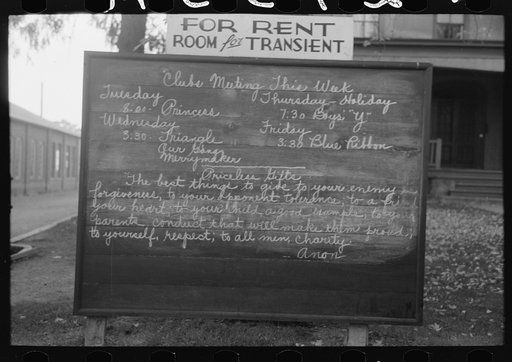 FOR RENT
ROOM for TRANSIENT
Clubs Meeting This Week
Tuesday
8:00 Princess
Wednesday
3:30 Triangle
Our Gang
Merrymaker
Thursday - Holiday
7:30 Boys "Y"
Friday
3:30 Blue Ribbon
Priceless Gifts
"The best things to give to your enemy is
forgiveness; to your oponent tolerence; to a friend
your heart; to your child a good example; to your
parents conduct that will make them proud;
to yourself, respect; to all men, charity
- Anon -